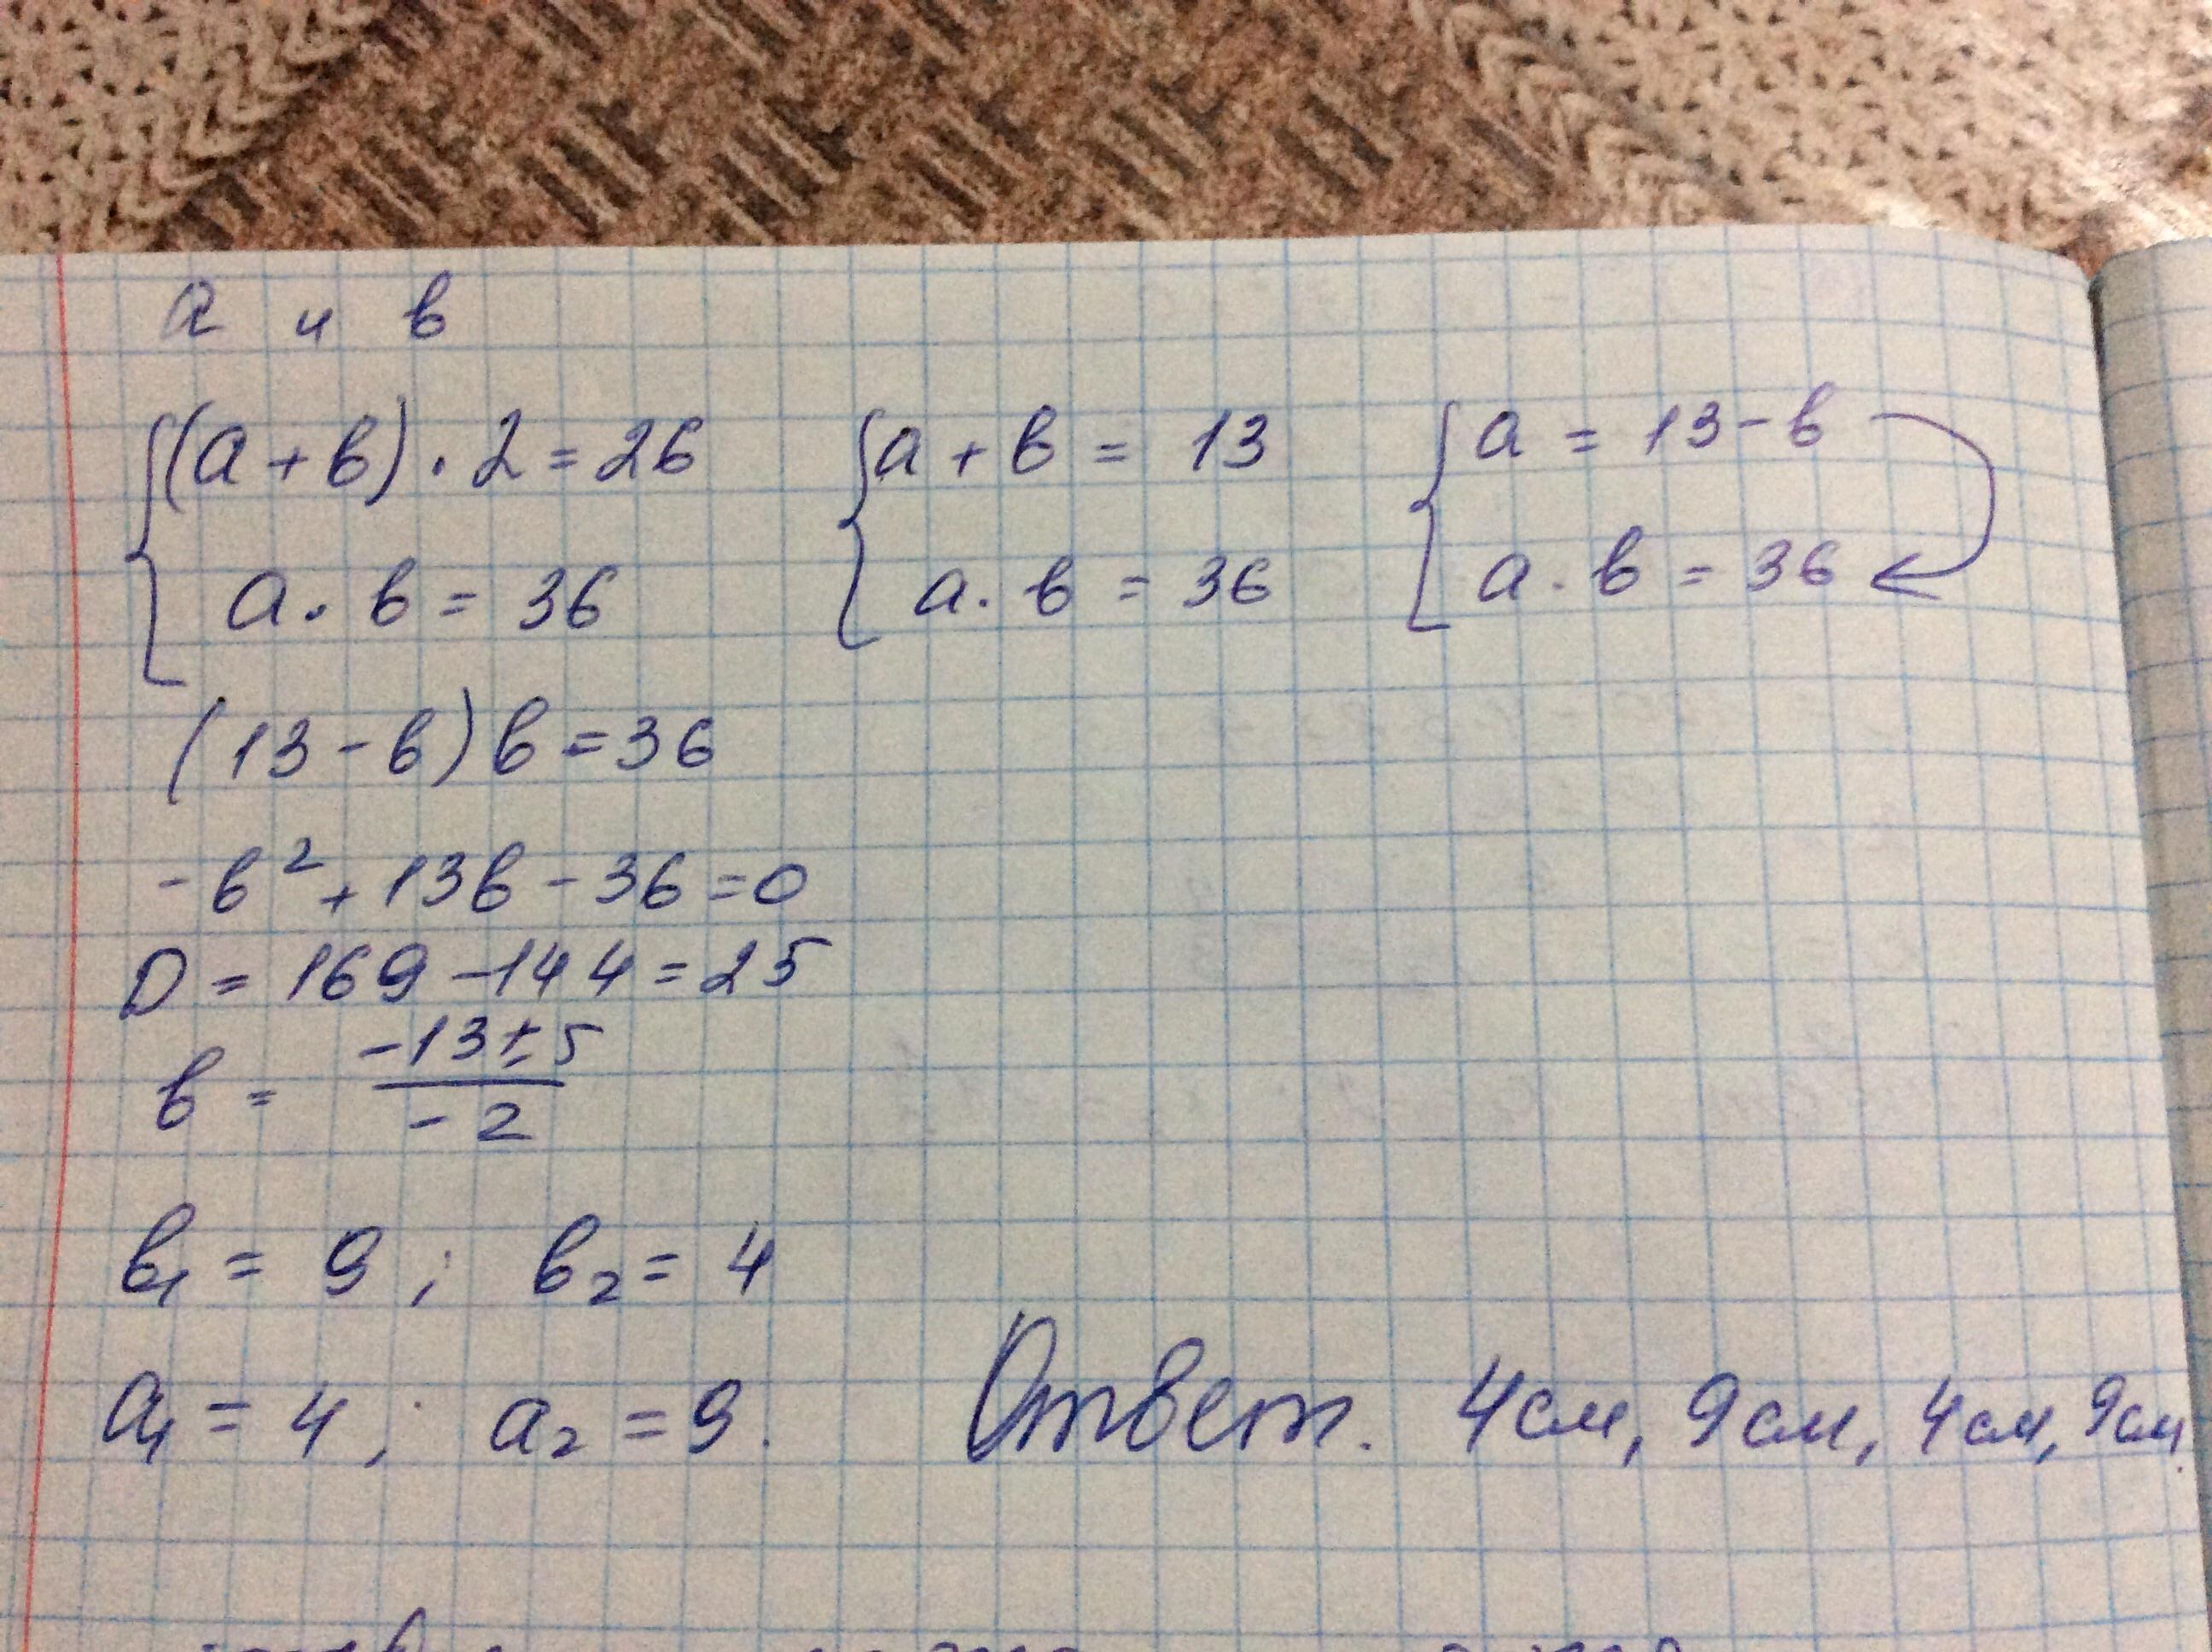 а и в
{(а + в) · 2 = 26 {а + в = 13 {а = 13 - в
а · в = 36 а · в = 36 а · в = 36
(13 - в) в = 36
- в² + 13в - 36 = 0
D = 169 - 144 = 25
в = (-13 ± 5) / (-2)
в₁ = 9 ; в₂ = 4
а₁ = 4 ; а₂ = 9. Ответ. 4см, 9см, 4см, 9см.